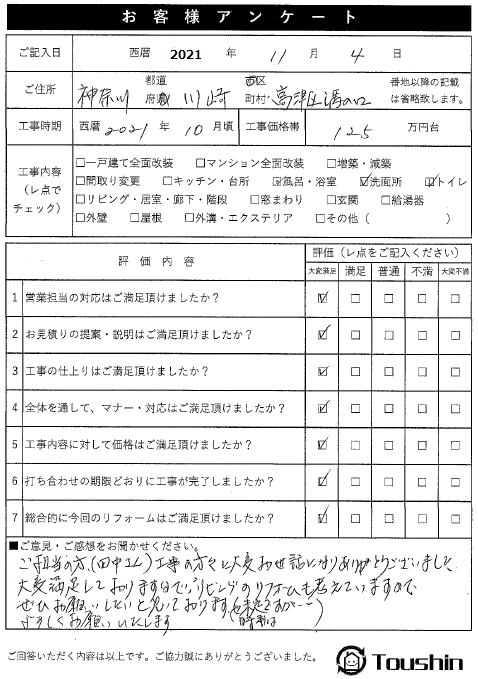 お客様アンケート
ご記入日 西暦 2021 年 11 月 4 日
ご住所 神奈川 都道府県 川崎 市区町村 高津区溝の口 番地以降の記載は省略致します。
工事時期 西暦 2021 年 10 月頃 工事価格帯 125 万円台
工事内容（レ点でチェック）
□一戸建て全面改装 □マンション全面改装 □増築・減築
□間取り変更 □キッチン・台所 ☑風呂・浴室 ☑洗面所 ☑トイレ
□リビング・居室・廊下・階段 □窓まわり □玄関 □給湯器
□外壁 □屋根 □外溝・エクステリア □その他（ ）
評価内容 評価（レ点をご記入ください）
大変満足 満足 普通 不満 大変不満
1 営業担当の対応はご満足頂けましたか？ ☑ □ □ □ □
2 お見積りの提案・説明はご満足頂けましたか？ ☑ □ □ □ □
3 工事の仕上りはご満足頂けましたか？ ☑ □ □ □ □
4 全体を通して、マナー・対応はご満足頂けましたか？ ☑ □ □ □ □
5 工事内容に対して価格はご満足頂けましたか？ ☑ □ □ □ □
6 打ち合わせの期限どおりに工事が完了しましたか？ ☑ □ □ □ □
7 総合的に今回のリフォームはご満足頂けましたか？ ☑ □ □ □ □
■ご意見・ご感想をお聞かせください。
ご担当の方、(田中さん) 工事の方々に大変お世話になりありがとうございました
大変満足しておりますので、リビングのリフォームも考えていますので
ぜひお願いしたいと思っております(時期は未定ですが…)
よろしくお願いいたします
ご回答いただく内容は以上です。ご協力誠にありがとうございました。
Toushin